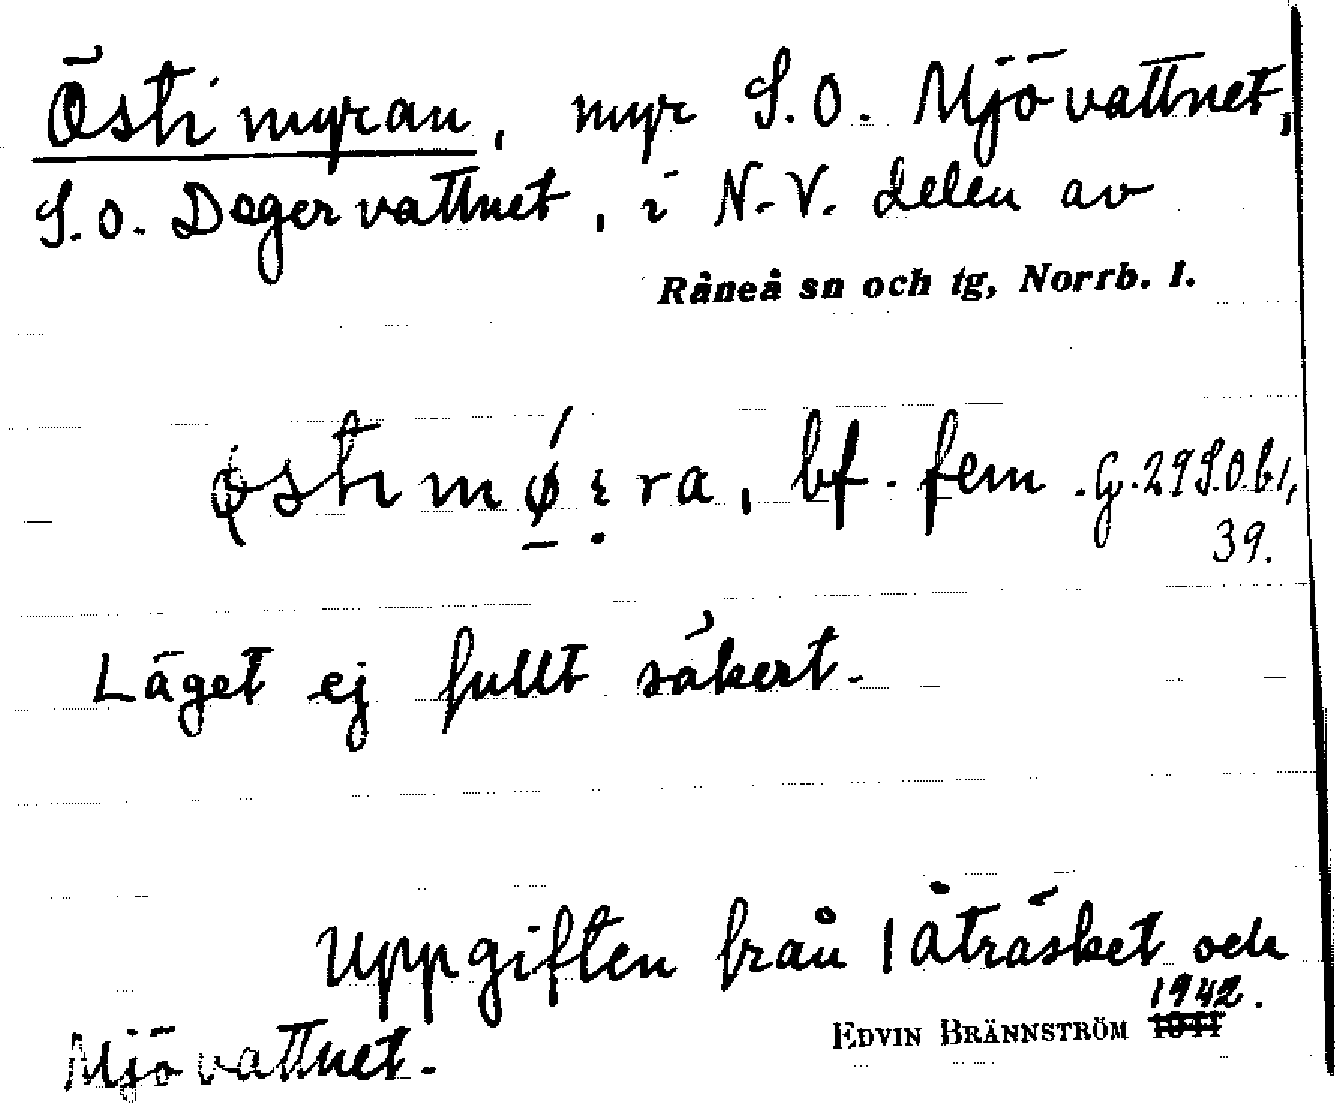 Östimyran, myr S.O. Mjövattnet,
S.O. Degervattnet, i N.V. delen av
Råneå sn och tg, Norrb. l.
østimø̱꞉̣ra, bf. fem. G.29S.Ob1,
39.
Läget ej fullt säkert.
Uppgiften från Låträsket och
Mjövattnet.
EDVIN BRÄNNSTRÖM 1942.